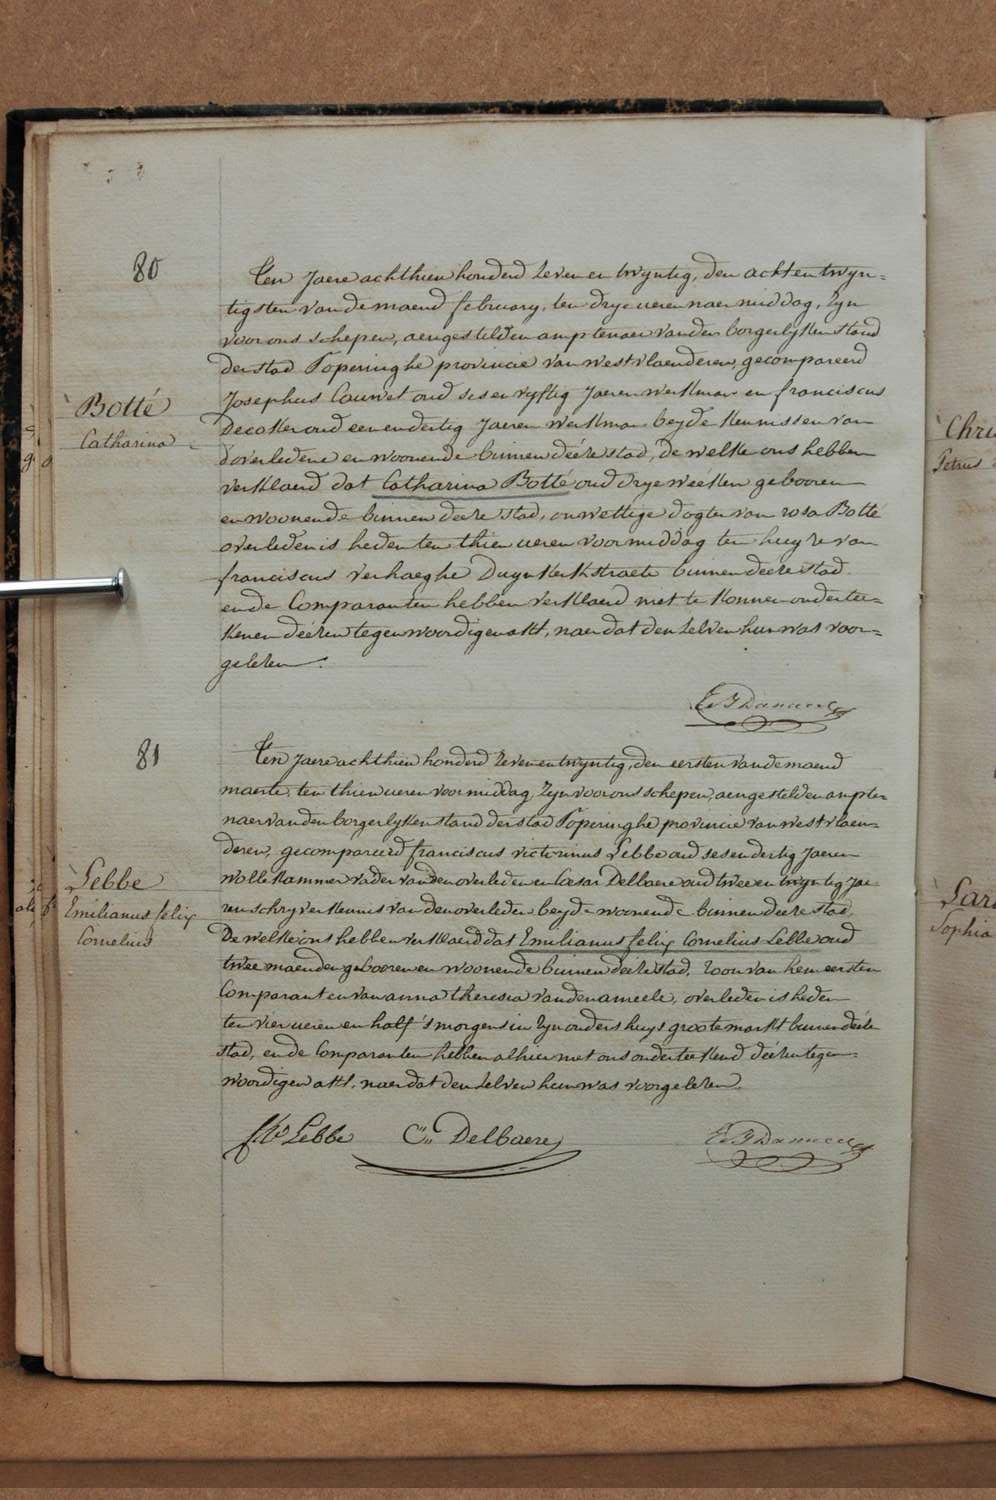 80
Ten jaere achthien honderd zeven en twyntig, den achtentwyn=
tigsten van de maend february, ten drye ueren naer middag, zyn
voor ons schepen, aengestelden amptenaer van den borgerlyken stand
der stad Poperinghe provincie van westvlaenderen, gecompareerd
Josephus Couwet oud ses en vyftig jaeren werkman en franciscus
Decoker oud een en dertig jaeren werkman beyde kennissen van
d'overledene en woonende binnen deéze stad, de welke ons hebben
verklaerd dat Catharina Botté oud drye weeken gebooren
en woonende binnen deeze stad, onwettige dogter van rosa Botté
overleden is heden ten thien ueren voormiddag ten huyze van
franciscus verhaeghe Duynkerkstraete binnen deeze stad
en de Comparanten hebben verklaerd niet te konnen ondertee=
kenen deézen tegenwoordigen akt, naer dat den zelven hun was voor=
gelezen.
Botté
Catharina
81
Ten jaere achthien honderd zeven en twyntig, den eersten van de maend
maerte, ten thien ueren voormiddag, zyn voor ons schepen, aengestelden ampte=
naer van den borgerlyken stand der stad Poperinghe provincie van westvlaen=
deren, gecompareerd franciscus victorinus Lebbe oud sesendertig jaeren
wollekammer vader van den overledenen Cesar Delbaere oud twee en twyntig jae
ren schryver kennis van den overleden beyde woonende binnen deeze stad,
De welke ons hebben verklaerd dat Emilianus felix Cornelius Lebbe oud
twee maenden gebooren en woonende binnen deéze stad, zoon van hem eersten
Comparant en van anna theresia vandenameele, overleden is heden
ten vier ueren en half 's morgens in zyn ouders huys groote markt binnen deéze
stad, en de Comparanten hebben alhier met ons onderteekend deézen tegen=
woordigen akt, naer dat den zelven hun was voorgelezen.
Lebbe
Emilianus felix
Cornelius
Lebbe Delbaere